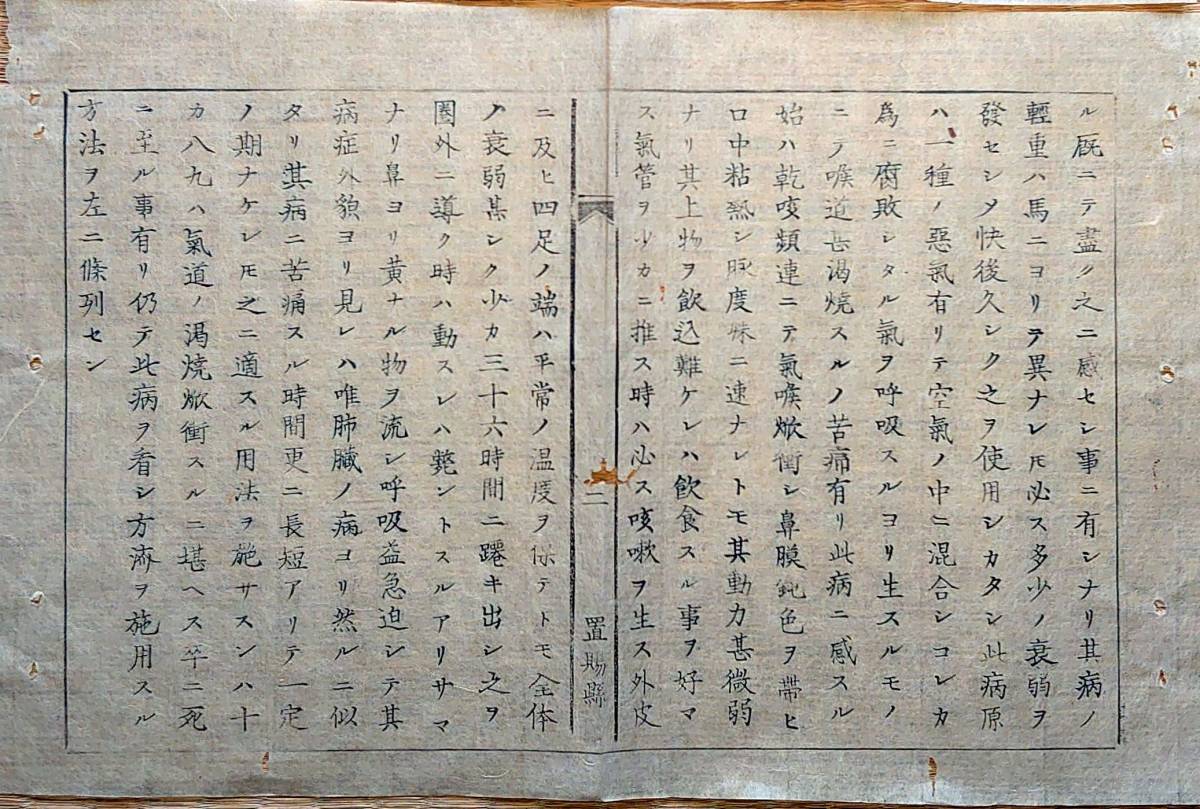 ル厩ニテ盡ク之ニ感セシ事ニ有シナリ其病ノ
輕重ハ馬ニヨリテ異ナレ𪜈必ス多少ノ衰弱ヲ
發セシメ快後久シク之ヲ使用シカタシ此病原
ハ一種ノ惡氣有リテ空氣ノ中ニ混合シコレカ
爲ニ腐敗シタル氣ヲ呼吸スルヨリ生スルモノ
ニテ喉道甚渇焼スルノ苦痛有リ此病ニ感スル
始ハ乾咳頻連ニテ氣喉焮衝シ鼻膜鈍色ヲ帶ヒ
口中粘熱シ脉度殊ニ速ナレトモ其動力甚微弱
ナリ其上物ヲ飲込難ケレハ飲食スル事ヲ好マ
ス氣管ヲ少カニ推ス時ハ必ス咳嗽ヲ生ス外皮
二
置賜縣
ニ及ヒ四足ノ端ハ平常ノ温度ヲ保テトモ全体
ノ衰弱甚シク少カ三十六時間ニ躚キ出シ之ヲ
圏外ニ導ク時ハ動スレハ斃ントスルアリサマ
ナリ鼻ヨリ黄ナル物ヲ流シ呼吸益急迫シテ其
病症外貌ヨリ見レハ唯肺臓ノ病ヨリ然ルニ似
タリ其病ニ苦痛スル時間更ニ長短アリテ一定
ノ期ナケレ𪜈之ニ適スル用法ヲ施サスンハ十
カ八九ハ氣道ノ渇焼焮衝スルニ堪ヘス卒ニ死
ニ至ル事有リ仍テ此病ヲ看シ方濟ヲ施用スル
方法ヲ左ニ條列セン